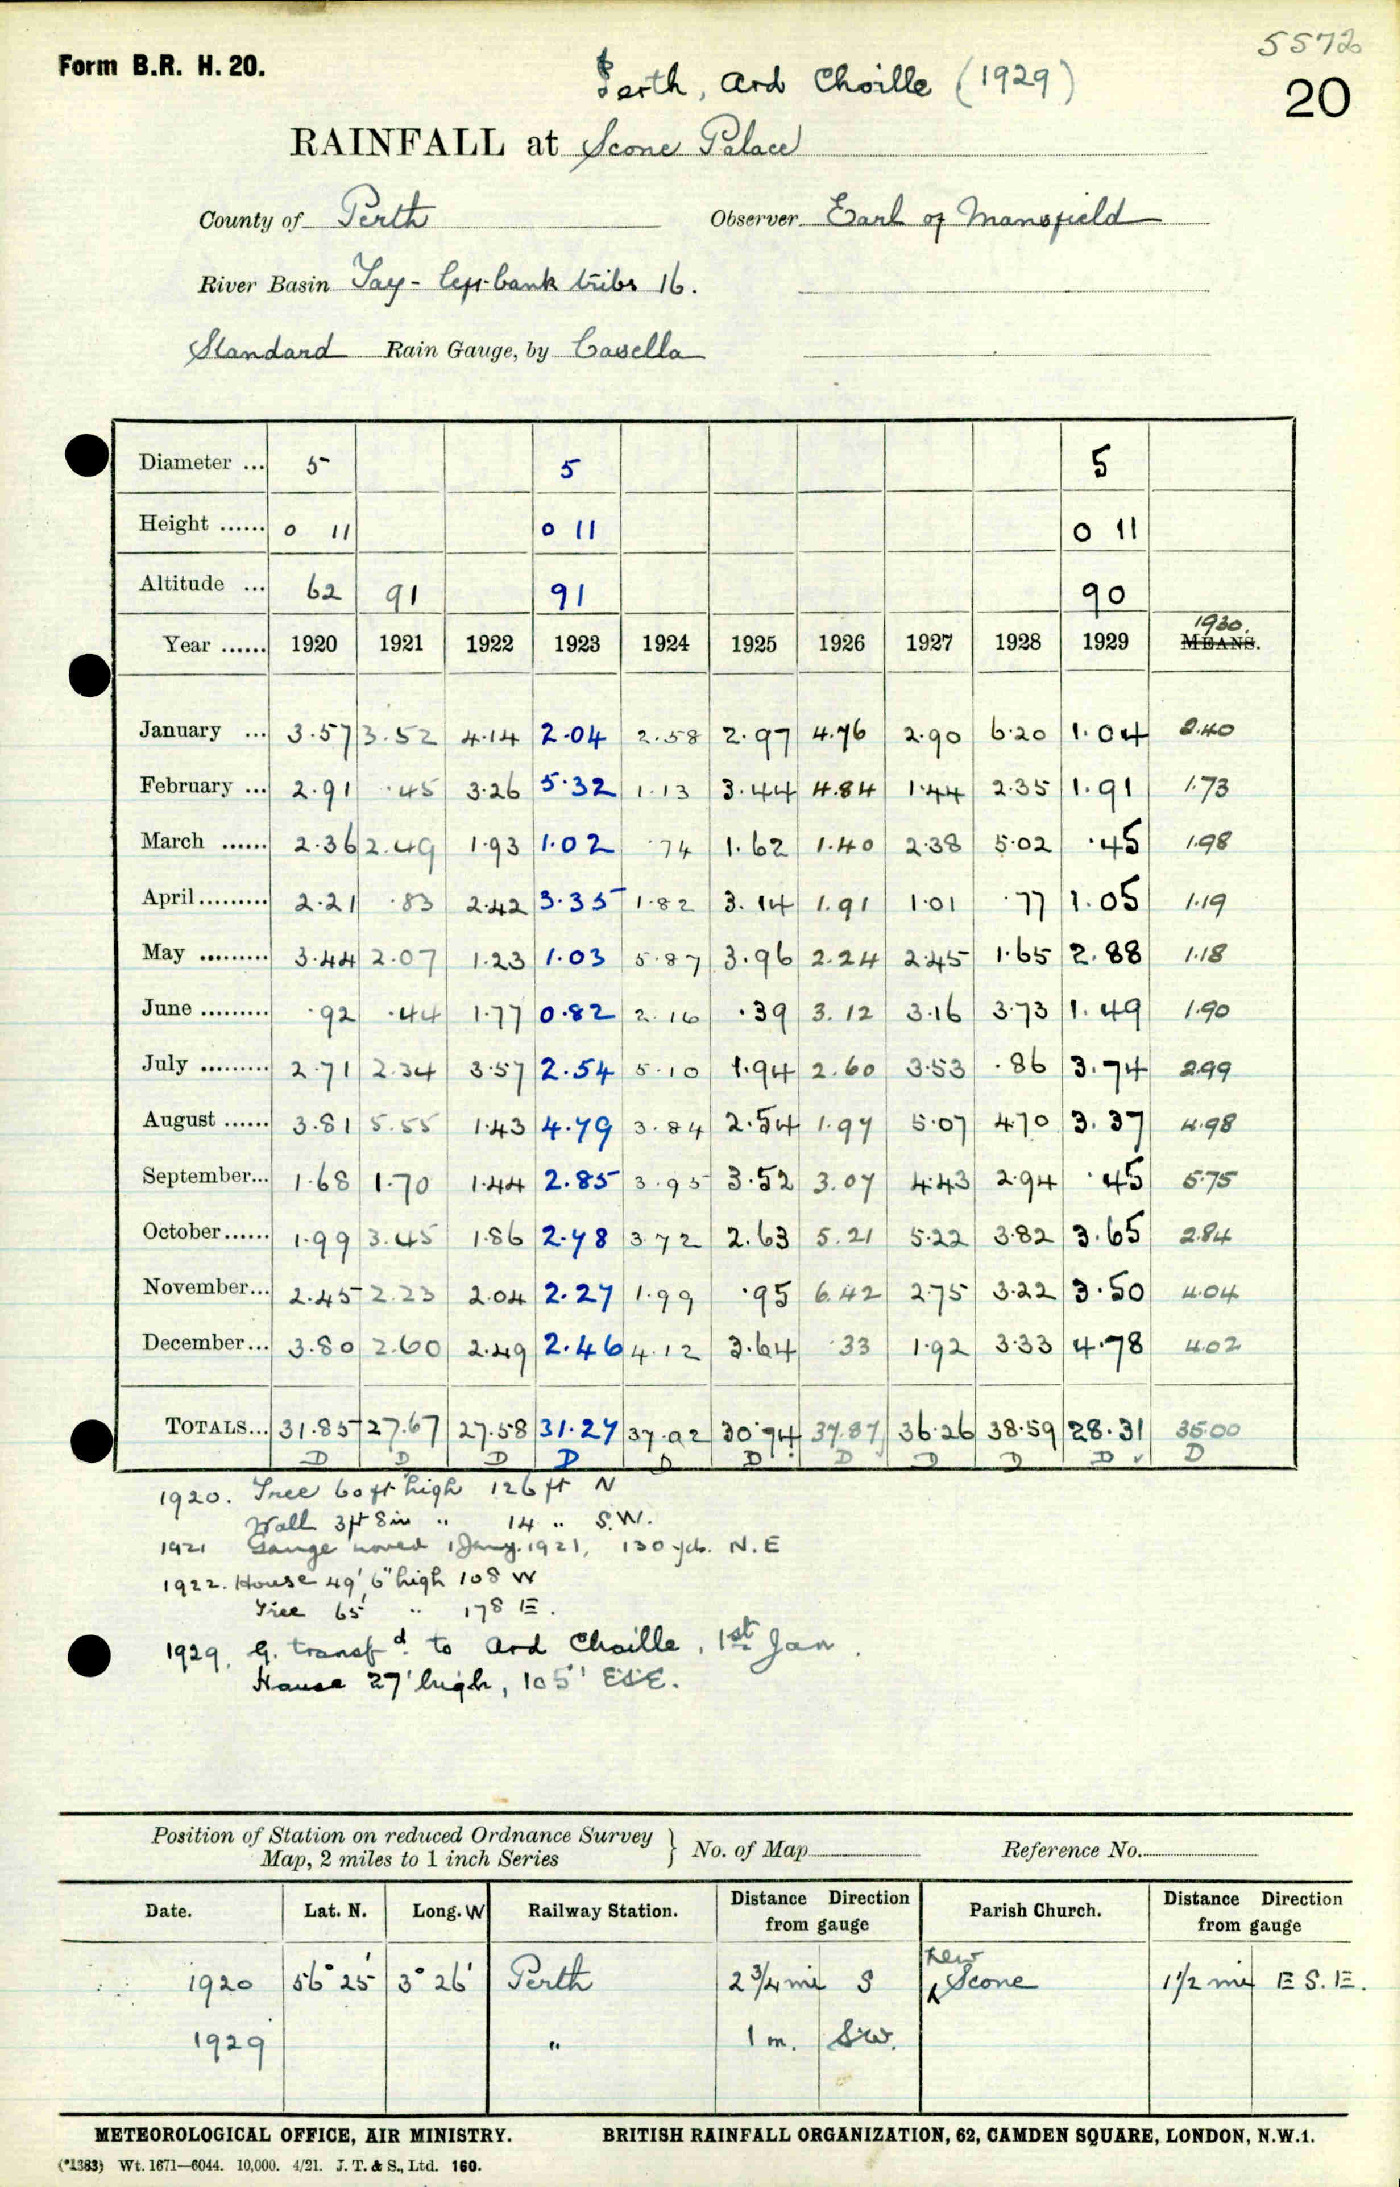 Form B.R. H. 20.
5572
20
Perth, Ard Choille (1929)
RAINFALL at Scone Palace
County of Perth Observer Earl of Mansfield
River Basin Tay - left bank tribs 16.
Standard Rain Gauge, by Casella
Diameter ... 5 5 5
Height ...... 0 11 0 11 0 11
Altitude ... 62 91 91 90
1930.
Year ...... 1920 1921 1922 1923 1924 1925 1926 1927 1928 1929 MEANS.
January ... 3.57 3.52 4.14 2.04 2.58 2.97 4.76 2.90 6.20 1.04 2.40
February ... 2.91 .45 3.26 5.32 1.13 3.44 4.84 1.44 2.35 1.91 1.73
March ...... 2.36 2.49 1.93 1.02 .74 1.62 1.40 2.38 5.02 .45 1.98
April ......... 2.21 .83 2.42 3.35 1.82 3.14 1.91 1.01 .77 1.05 1.19
May ......... 3.44 2.07 1.23 1.03 5.87 3.96 2.24 2.45 1.65 2.88 1.18
June ......... .92 .44 1.77 0.82 2.16 .39 3.12 3.16 3.73 1.49 1.90
July ......... 2.71 2.34 3.57 2.54 5.10 1.94 2.60 3.53 .86 3.74 2.99
August ...... 3.81 5.55 1.43 4.79 3.84 2.54 1.97 5.07 4.70 3.37 4.98
September... 1.68 1.70 1.44 2.85 3.95 3.52 3.07 4.43 2.94 .45 5.75
October...... 1.99 3.45 1.86 2.78 3.72 2.63 5.21 5.22 3.82 3.65 2.84
November... 2.45 2.23 2.04 2.27 1.99 .95 6.42 2.75 3.22 3.50 4.04
December... 3.80 2.60 2.49 2.46 4.12 3.64 .33 1.92 3.33 4.78 4.02
TOTALS... 31.85 27.67 27.58 31.27 37.02 30.74 37.87 36.26 38.59 28.31 35.00
D D D D D D D D D D ✓ D
1920. Tree 60 ft high 126 ft N
Wall 3ft 8in " 14 " S.W.
1921 Gauge moved 1 Jany. 1921, 130 yds. N.E
1922. House 49' 6" high 108 W
Tree 65' " 178 E.
1929. G. transfd. to Ard Choille, 1st Jan.
House 27' high, 105' ESE.
Position of Station on reduced Ordnance Survey
Map, 2 miles to 1 inch Series } No. of Map Reference No.
Date. Lat. N. Long. W Railway Station. Distance Direction from gauge Parish Church. Distance Direction from gauge
1920 56° 25' 3° 26' Perth 2 3/4 mi S New Scone 1 1/2 mi E S. E.
1929 " 1 m. SW.
METEOROLOGICAL OFFICE, AIR MINISTRY. BRITISH RAINFALL ORGANIZATION, 62, CAMDEN SQUARE, LONDON, N.W.1.
(*1383) Wt. 1671—6044. 10,000. 4/21. J. T. & S., Ltd. 160.